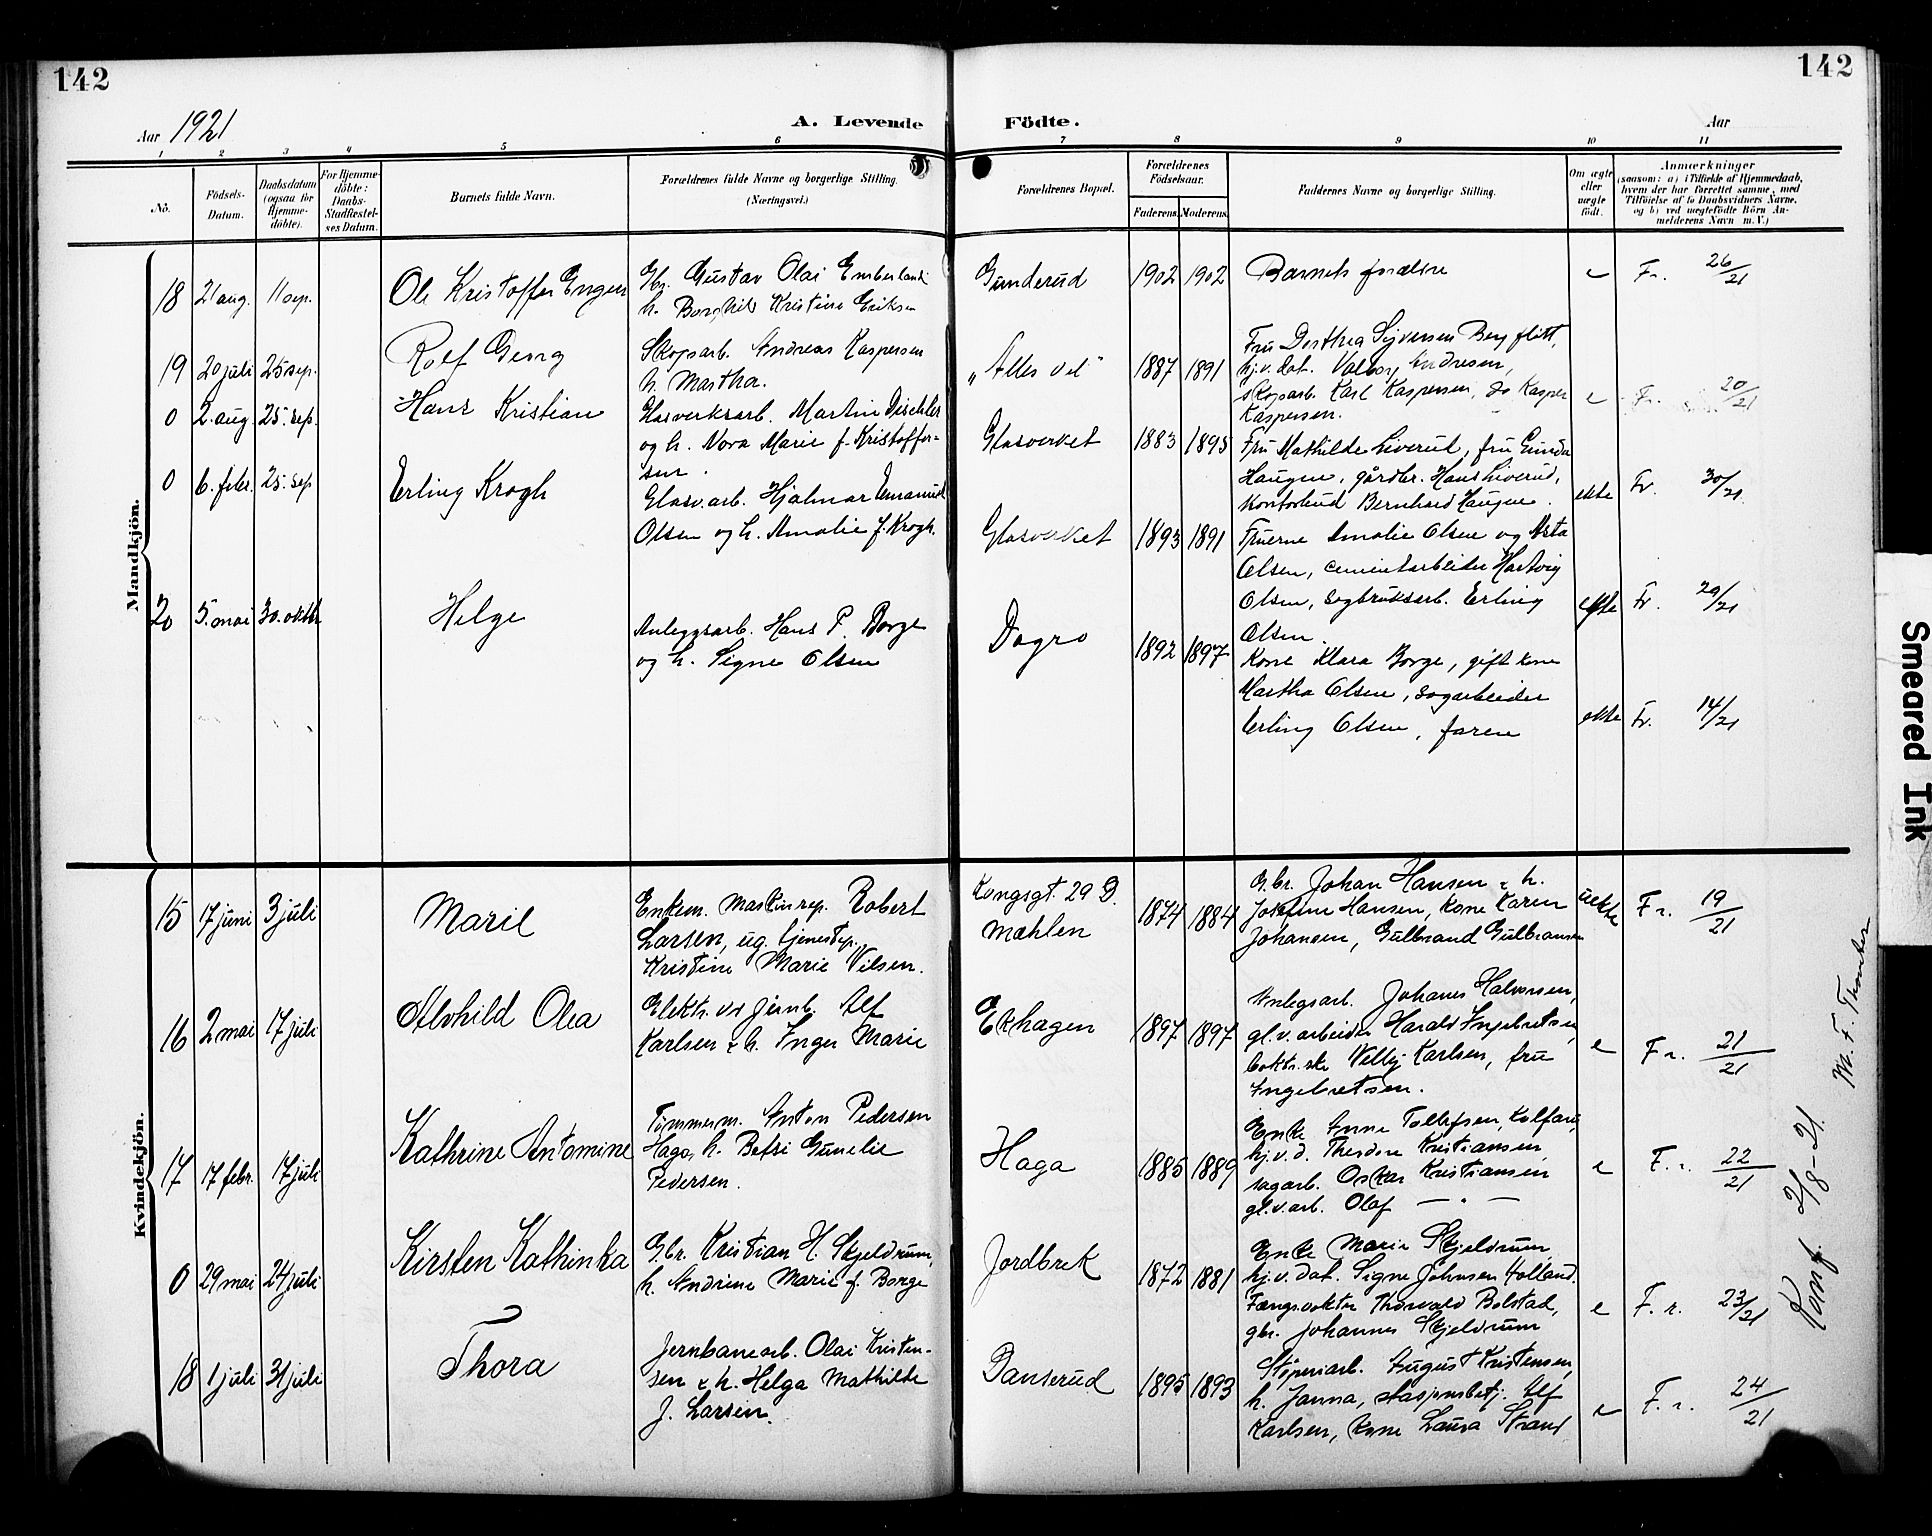 142
142
Aar 1921
A. Levende Födte.
Aar
1 2 3 4 5 6 7 8 9 10 11
No.
Födsels-Datum.
Daabsdatum (ogsaa for Hjemme-döbte).
For Hjemme-döbte: Daabs-Stadfæstel-ses Datum.
Barnets fulde Navn.
Forældrenes fulde Navne og borgerlige Stilling. (Næringsvei.)
Forældrenes Bopæl.
Forældrenes Födselsaar.
Faderens. Moderens.
Faddernes Navne og borgerlige Stilling.
Om ægte eller uægte födt.
Anmærkninger
(saasom: a) i Tilfælde af Hjemmedaab,
hvem der har forrettet samme, med
Tilföielse af to Daabsvidners Navne,
og b) ved uægtefödte Börn An-
melderens Navn m. V.)
Mandkjön.
18 21 aug. 11 sep. Ole Kristoffer Engen
Gbr. Gustav Olai Emberland
h. Borghild Kristine Eriksen
Gunderud 1902 1902 Barnets forældre e Fr. 26/21
19 20 juli 25 sep. Rolf Georg
Skogsarb. Andreas Kaspersen
h. Martha.
"Alles vel" 1887 1891
Fru Dorthea Syversen Bergfløtt,
hj.v. dat. Valborg Andresen,
skogsarb. Karl Kaspersen, do Kasper
Kaspersen.
e Fr. 20/21
0 2. aug. 25. sep. Hans Kristian
Glasverksarb. Martin Dischler
og h. Nora Marie f. Kristoffer-
sen.
Glasverket 1883 1895
Fru Mathilde Liverud, fru Gunda
Haugen, gårdbr. Hans Liverud,
kontorbud Bernhard Haugen.
ekte Fr. 30/21
0 6. febr. 25. sep Erling Krogh
Glasv.arb. Hjalmar Emanuel
Olsen og h. Amalie f. Krogh.
Glasverket 1893 1891
Fruerne Amalie Olsen og Asta
Olsen, cementarbeider Hartvig
Olsen, sagbruksarb. Erling
Olsen.
ekte Fr. 29/21
20 5. mai 30. oktbr Helge
Anleggsarb. Hans P. Borge
og h. Signe Olsen
Dagro 1892 1897
Kone Klara Borge, gift kone
Martha Olsen, sagarbeider
Erling Olsen, faren
ekte Fr. 14/21
Kvindekjön.
15 17 juni 3 juli Maril
Enkem. Maskinrep. Robert
Larsen, ug. tjenestep.
Kristine Marie Nilsen.
Kongsgt. 29 D.
Mæhlen 1874 1884
G.br. Johan Hansen & h.
Josefine Hansen, Kone Karen
Johansen, Gulbrand Gulbransen
uekte Fr. 19/21
16 2 mai 17 juli Alvhild Olea
Elektr. v. jernb. Alf
Karlsen & h. Inger Marie
Ekhagen 1897 1897
Anlegsarb. Johanes Halvorsen,
gl.v. arbeider Harald Ingebretsen,
Willy Karlsen, fru
Ingebretsen.
e Fr. 21/21
17 17 febr. 17 juli Kathrine Antonine
Tømmerm. Anton Pedersen
Haga, h. Betsi Gunelie
Pedersen.
Haga 1885 1889
Enke Anne Tollefsen, Kolfaru,
hj.v.d. Theodora Kristiansen,
sagarb. Oskar Kristiansen
gl.v.arb. Olaf — " —
e F.r. 22/21
0 29 mai 24 juli Kirsten Kathinka
Gbr. Kristian H. Skjeldrum,
h. Andrine Marie f. Borge
Jordbrek 1872 1881
Enke Marie Skjeldrum
hj.v. dat. Signe Johnsen Holland.
Fængsvokter Thorvald Bolstad,
gbr. Johannes Skjeldrum
e F. r. 23/21
18 1 juli 31 juli Thora
Jernbanearb. Olai Kristen-
sen & h. Helga Mathilde
f. Larsen.
Danserud 1895 1893
Støperiarb. August Kristensen,
h. Janna, stasjonsbetj. Alf
Karlsen, Kone Laura Strand
e F.r. 24/21
Konf. 21/8-21.
Smeared Ink